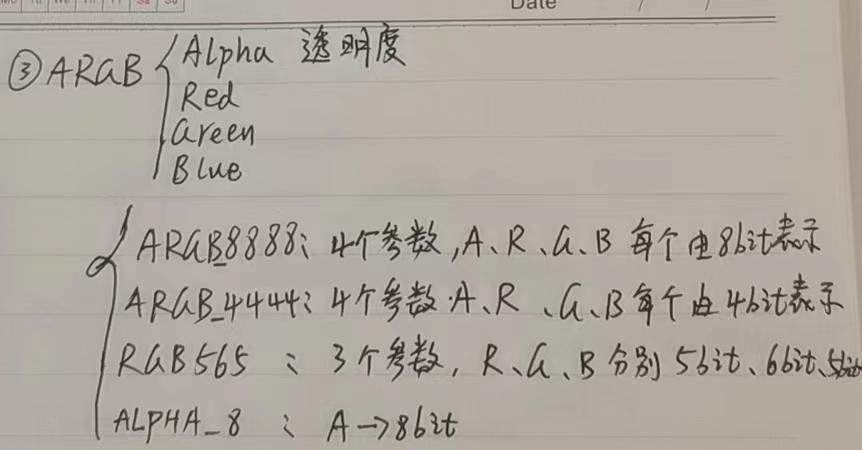 Mo Tu We Th Fr Sa Su
Date / /
③ARGB Alpha 透明度
Red
Green
Blue
ARGB_8888: 4个参数,A、R、G、B 每个由8bit表示
ARGB_4444: 4个参数.A、R、G、B每个由4bit表示
RGB565 : 3个参数, R、G、B分别 5bit、6bit、5bit
ALPHA_8 : A→8bit